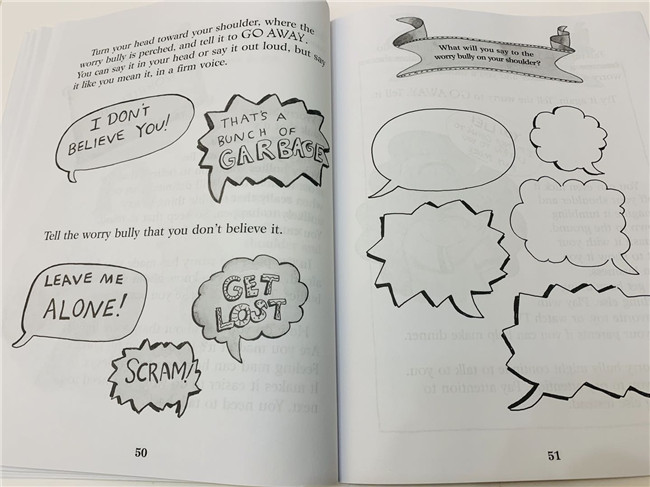 Turn your head toward your shoulder, where the
worry bully is perched, and tell it to GO AWAY.
You can say it in your head or say it out loud, but say
it like you mean it, in a firm voice.
I DON'T
BELIEVE YOU!
THAT'S A
BUNCH OF
GARBAGE
Tell the worry bully that you don't believe it.
LEAVE ME
ALONE!
GET
LOST
SCRAM!
50
What will you say to the
worry bully on your shoulder?
51